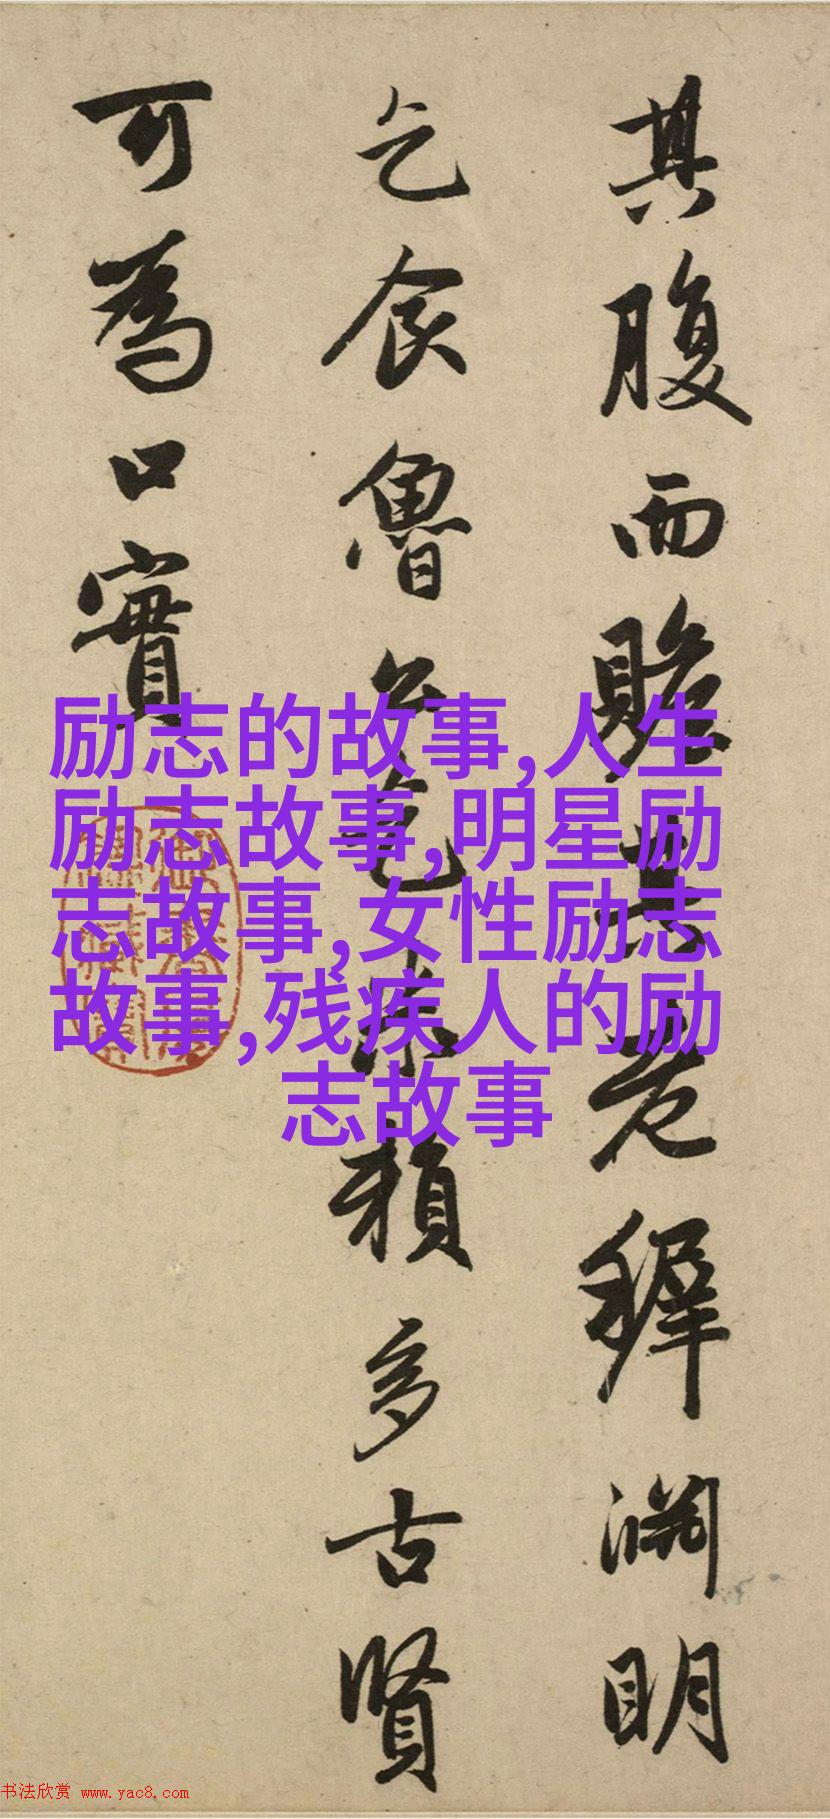 其腹而贍其老稺淵明
乞食魯公乞米賴多古賢
可為口實
励志的故事,人生
励志故事,明星励
志故事,女性励志
故事,残疾人的励
志故事
书法欣赏 www.yac8.com